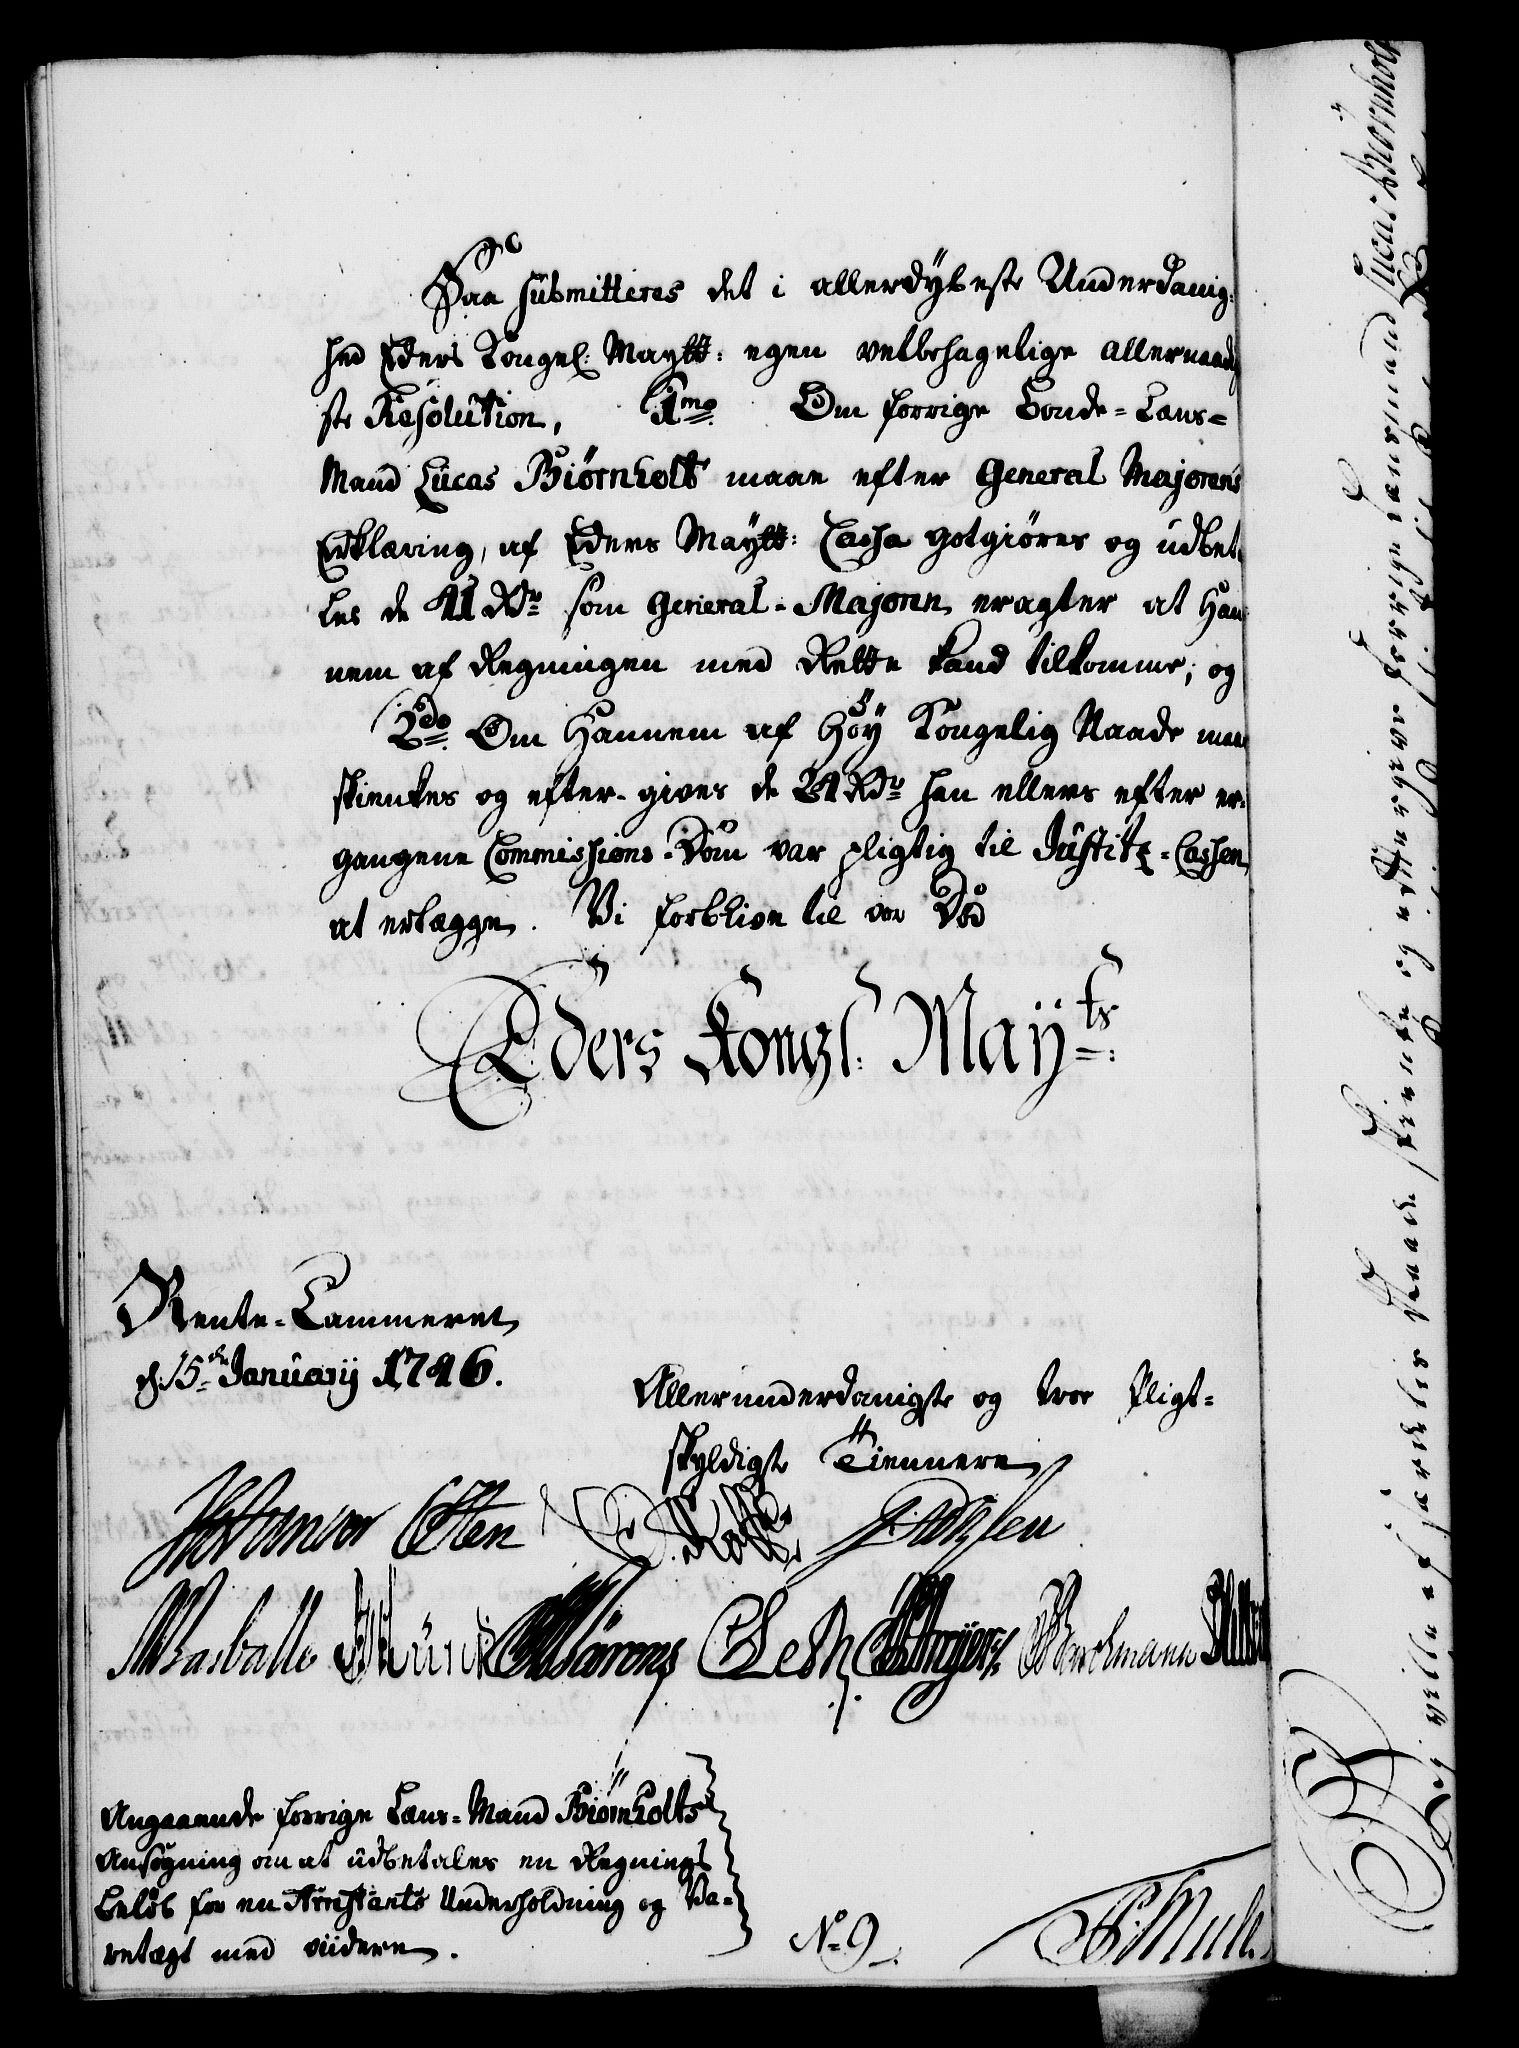 Saa submitteres det i allerdybeste Underdanig-
hed Eders Kongel: Maytt: egen velbehagelige allernaadig
ste Resolution, 1mo Om forrige Bonde-Læns-
Mand Lucas Biørnholt maae efter General Majorens
Erklæring, af Eders Maytt: Cassa gotgiøres og udbeta
les de 41 Rdr som General-Majoren eragter at Han
nem af Regningen med Rette kand tilkomme; og
2do Om Hannem af Høy Kongelig Naade maae
skienkes og efter-gives de 24 Rdr han ellers efter er-
gangene Commissions-Dom var pligtig til Justitz-Cassen
at erlægge. Vi forblive til vor Død
Eders Kongl. Mayts:
Rente-Cammeret
d. 15de January 1746.
Allerunderdanigste og troe Pligt-
skyldigste Tiennere
Angaaende forrige Læns-Mand Biørnholts
Ansøgning om at udbetales en Regnings
Beløb for en Arrestants Underholdning og Va-
retægt med viidere.
No 9
Vi ville af særdeles Naade skienke og eftergive forrige Lænsmand Lucas Biørnholt